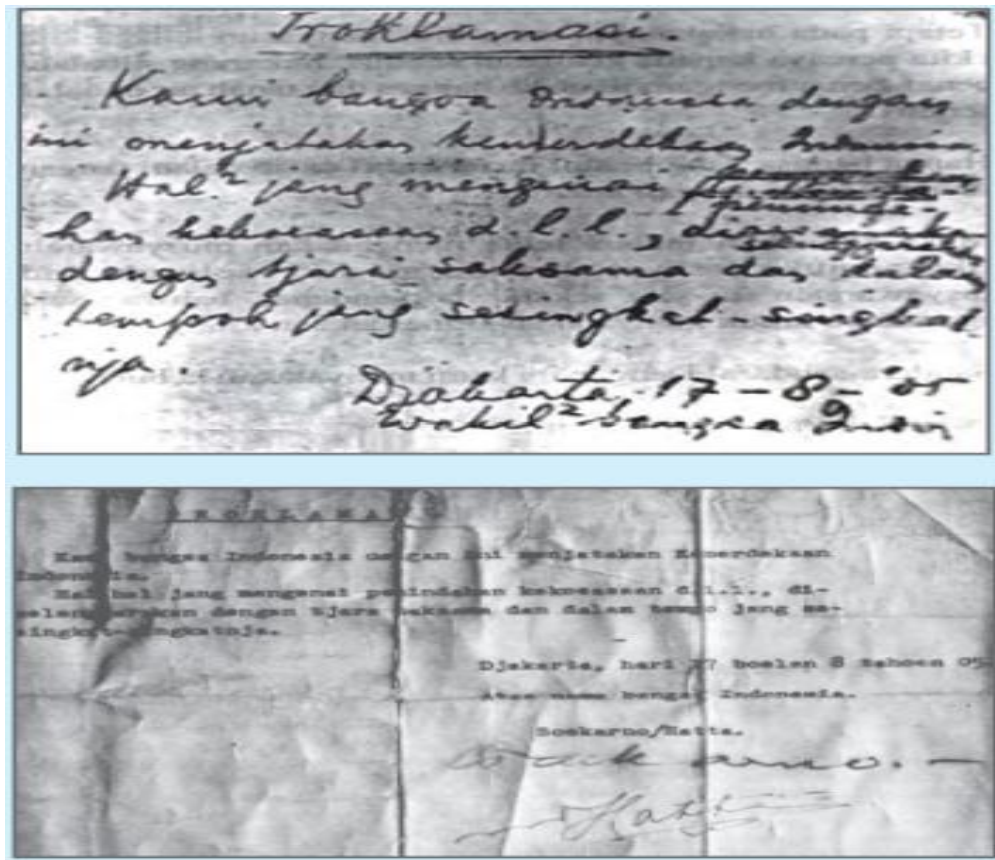 Proklamasi.
Kami bangsa Indonesia dengan
ini menjatakan kemerdekaan Indonesia.
Hal² jang mengenai
kekoeasaan d.l.l.,
dengan tjara saksama dan dalam
tempoh jang sesingkat-singkat
nja.
Djakarta, 17 - 8 - '05
Wakil² bangsa Indon
PROKLAMASI
Kami bangsa Indonesia dengan ini menjatakan Kemerdekaan
Indonesia.
Hal hal jang mengenai pemindahan kekoeasaan d.l.l., di-
selenggarakan dengan tjara saksama dan dalam tempo jang se-
singkat-singkatnja.
Djakarta, hari 17 boelan 8 tahoen 05
Atas nama bangsa Indonesia.
Soekarno/Hatta.
Soekarno.
Hatta